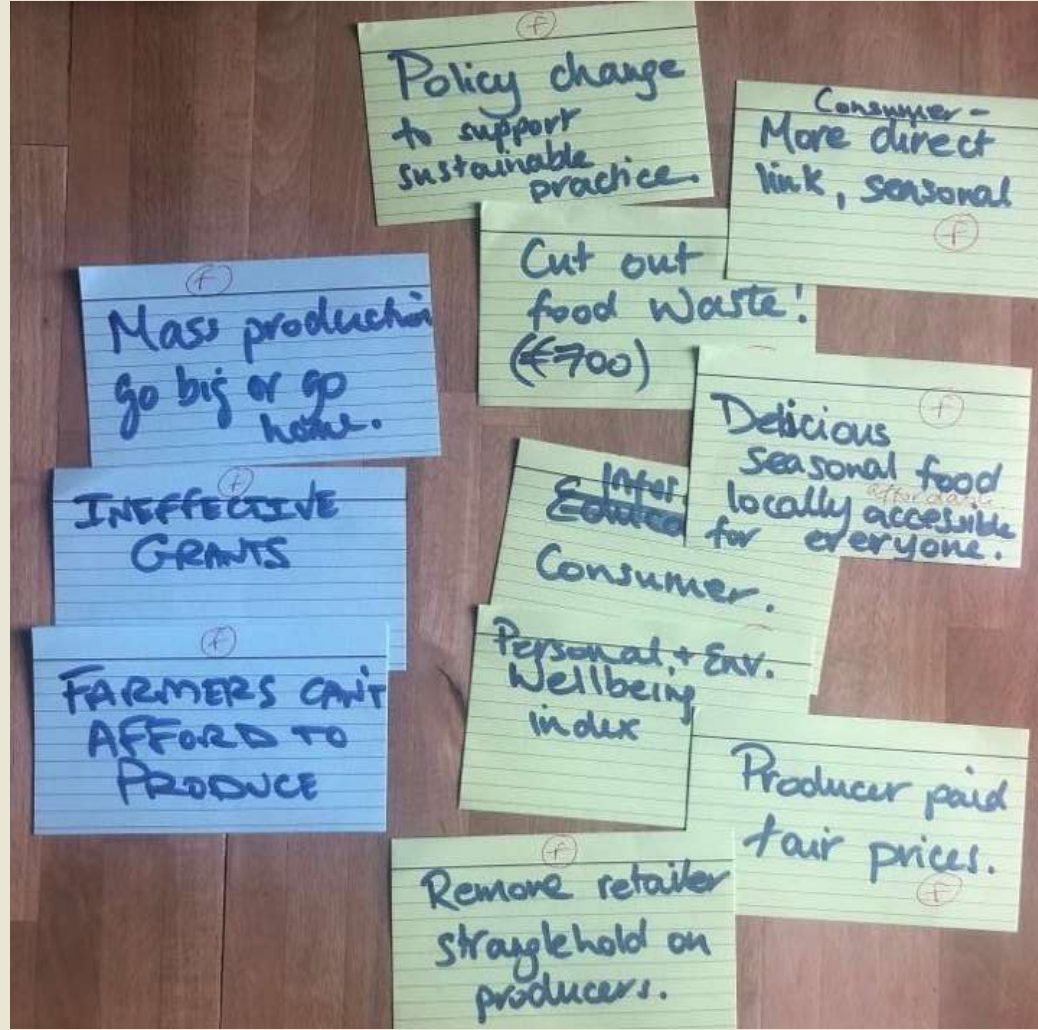 f
Policy change
to support
sustainable
practice.
Consumer -
More direct
link, seasonal
f
f
Mass production
go big or go
home.
Cut out
food waste!
(€700)
f
Delicious
seasonal food
affordable
locally accessible
for everyone.
f
INEFFECTIVE
GRANTS
Infor
Consumer.
f
FARMERS CAN'T
AFFORD TO
PRODUCE
Personal + Env.
Wellbeing
index
Producer paid
fair prices.
f
f
Remove retailer
stranglehold on
producers.